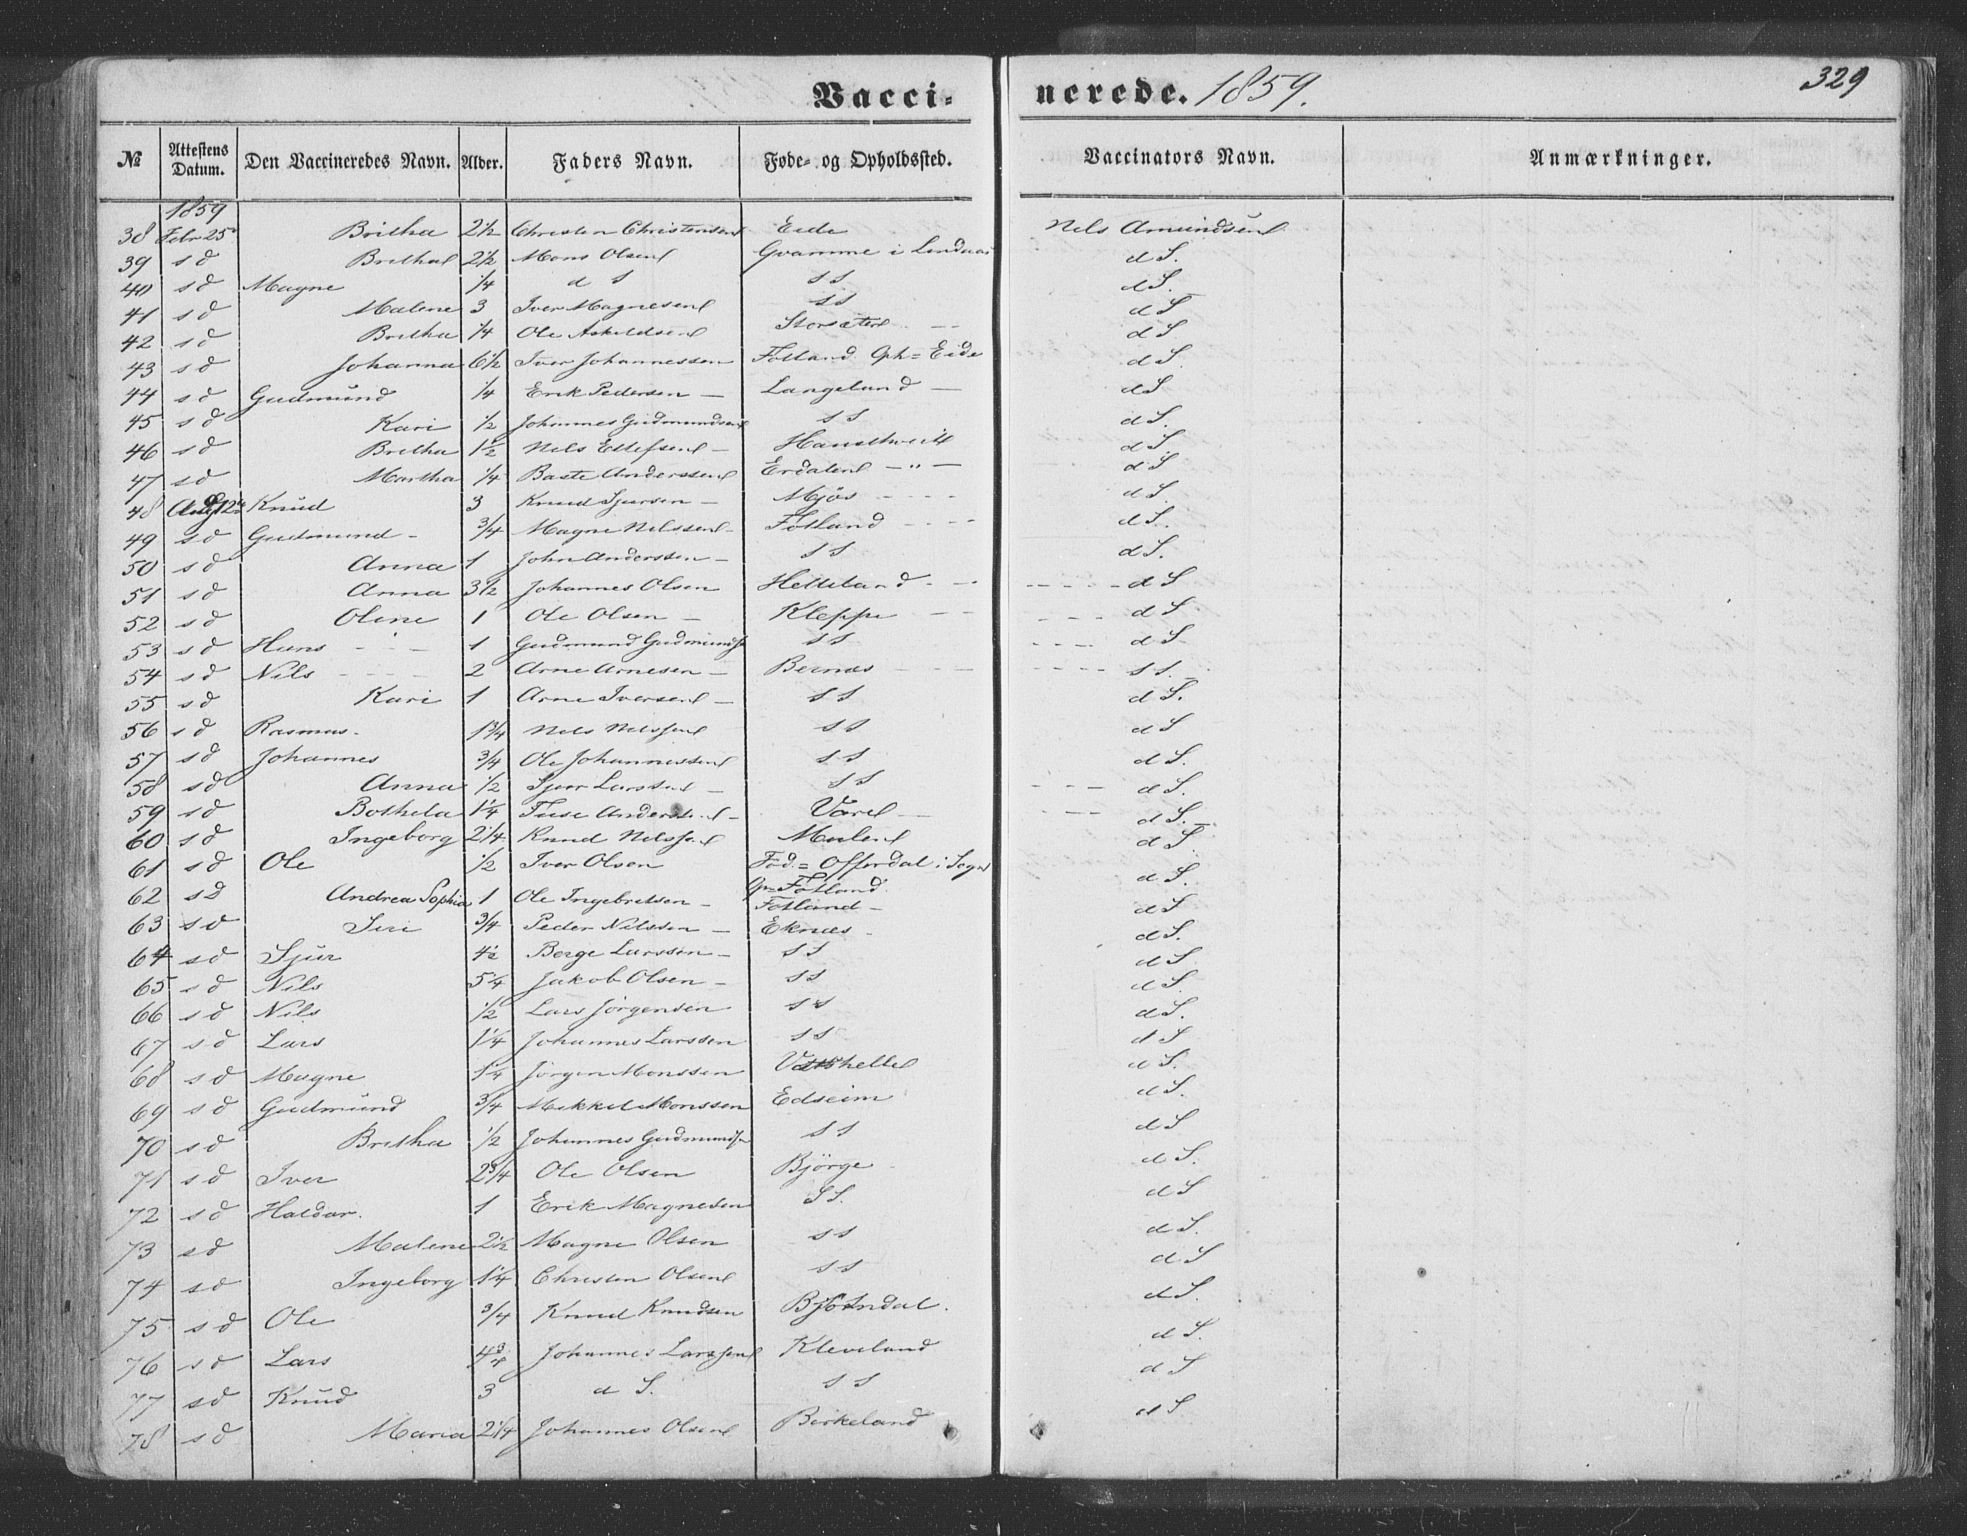 Vacci- nerede. 1859. 329
№ Attestens Datum. Den Vaccineredes Navn. Alder. Faders Navn. Føde- og Opholdssted. Vaccinators Navn. Anmærkninger.
1859
38 Febr 25 Britha 2½ Christen Christensen Eide Nils Amundsen
39 s d Britha 2½ Mons Olsen Gvamme i Lindaas d S.
40 s d Magne ¼ d S s s d S.
41 s d Malene 3 Iver Magnesen s s d S
42 s d Britha ¼ Ole Askeldsen Storsæter d S
43 s d Johanna 6½ Iver Johannessen Fotland Oph= Eide d S.
44 s d Gudmund ¼ Erik Pedersen — Langeland — d S
45 s d Kari ½ Johannes Gudmundsen s s d S.
46 s d Britha 1½ Nils Ellefsen — d S.
47 s d Martha ¼ Baste Anderssen Erdalen — " — d S.
48 Aug 12 Knud 3 Knud Sjursen — Mjøs d S.
49 s d Gudmund - ¾ Magne Nilssen - Fotland d S.
50 s d Anna 1 John Anderssen — s s d S.
51 s d Anna 3½ Johannes Olsen Helleland d S
52 s d Olene 1 Ole Olsen — Kleppe d S.
53 s d Hans 1 Gudmund Gudmunds. s s d S
54 s d Nils 2 Arne Arnesen — Bernæs s s.
55 s d Kari 1 Arne Iversen — s s d S.
56 s d Rasmus. 1¾ Nils Nilssen s s d S
57 s d Johannes ¾ Ole Johannessen s s d S.
58 s d Anna ½ Sjur Larssen — s s d S.
59 s d Bothela 1¼ Anderssen — d S.
60 s d Ingeborg 2¼ Knud Nilssen Mulen d S.
61 s d Ole ½ Iver Olsen Fød.= Offerdal i Sogn d S.
Op= Fotland.
62 s d Andrea Sophia 1 Ole Ingebretsen — Fotland — d S
63 s d Siri ¾ Peder Nilssen — Eknæs - d S.
64 s d Sjur 4½ Børge Larssen — s s d S
65 s d Nils 5¼ Jakob Olsen — s s d S.
66 s d Nils ½ Lars Jørgensen s s d S.
67 s d Lars 1¼ Johannes Larssen s s d S
68 s d Magne 1¼ Jørgen Monssen d S.
69 s d Gudmund ¾ Mikkel Monssen Edseim d S.
70 s d Britha ½ Johannes Gudmunds. s s d S
71 s d Iver 2¾ Ole Olsen Bjørge d S.
72 s d Haldor. 1 Erik Magnesen S S. d S
73 s d Malene 2½ Magne Olsen s s d S.
74 s d Ingeborg 1¼ Christen Olsen s s d S
75 s d Ole ¾ Knud Knudsen Bjørndal. d S.
76 s d Lars 4¾ Johannes Larssen Kleveland d S.
77 s d Knud 3 d S. s s d S
78 s d Maria 2¼ Johannes Olsen Birkeland d S